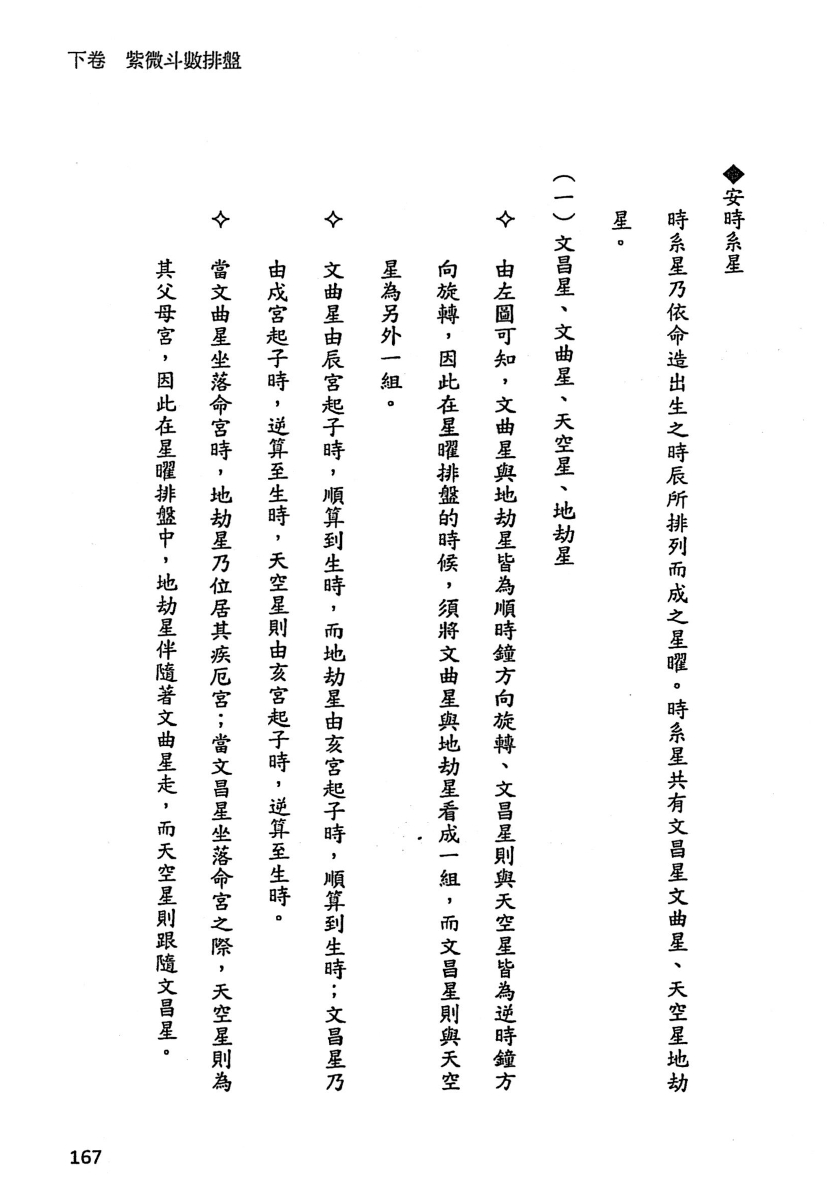 下卷　紫微斗數排盤
◆安時系星
時系星乃依命造出生之時辰所排列而成之星曜。時系星共有文昌星文曲星、天空星地劫
星。
（一）文昌星、文曲星、天空星、地劫星
✧　由左圖可知，文曲星與地劫星皆為順時鐘方向旋轉、文昌星則與天空星皆為逆時鐘方
向旋轉，因此在星曜排盤的時候，須將文曲星與地劫星看成一組，而文昌星則與天空
星為另外一組。
✧　文曲星由辰宮起子時，順算到生時，而地劫星由亥宮起子時，順算到生時；文昌星乃
由戍宮起子時，逆算至生時，天空星則由亥宮起子時，逆算至生時。
✧　當文曲星坐落命宮時，地劫星乃位居其疾厄宮；當文昌星坐落命宮之際，天空星則為
其父母宮，因此在星曜排盤中，地劫星伴隨著文曲星走，而天空星則跟隨文昌星。
167